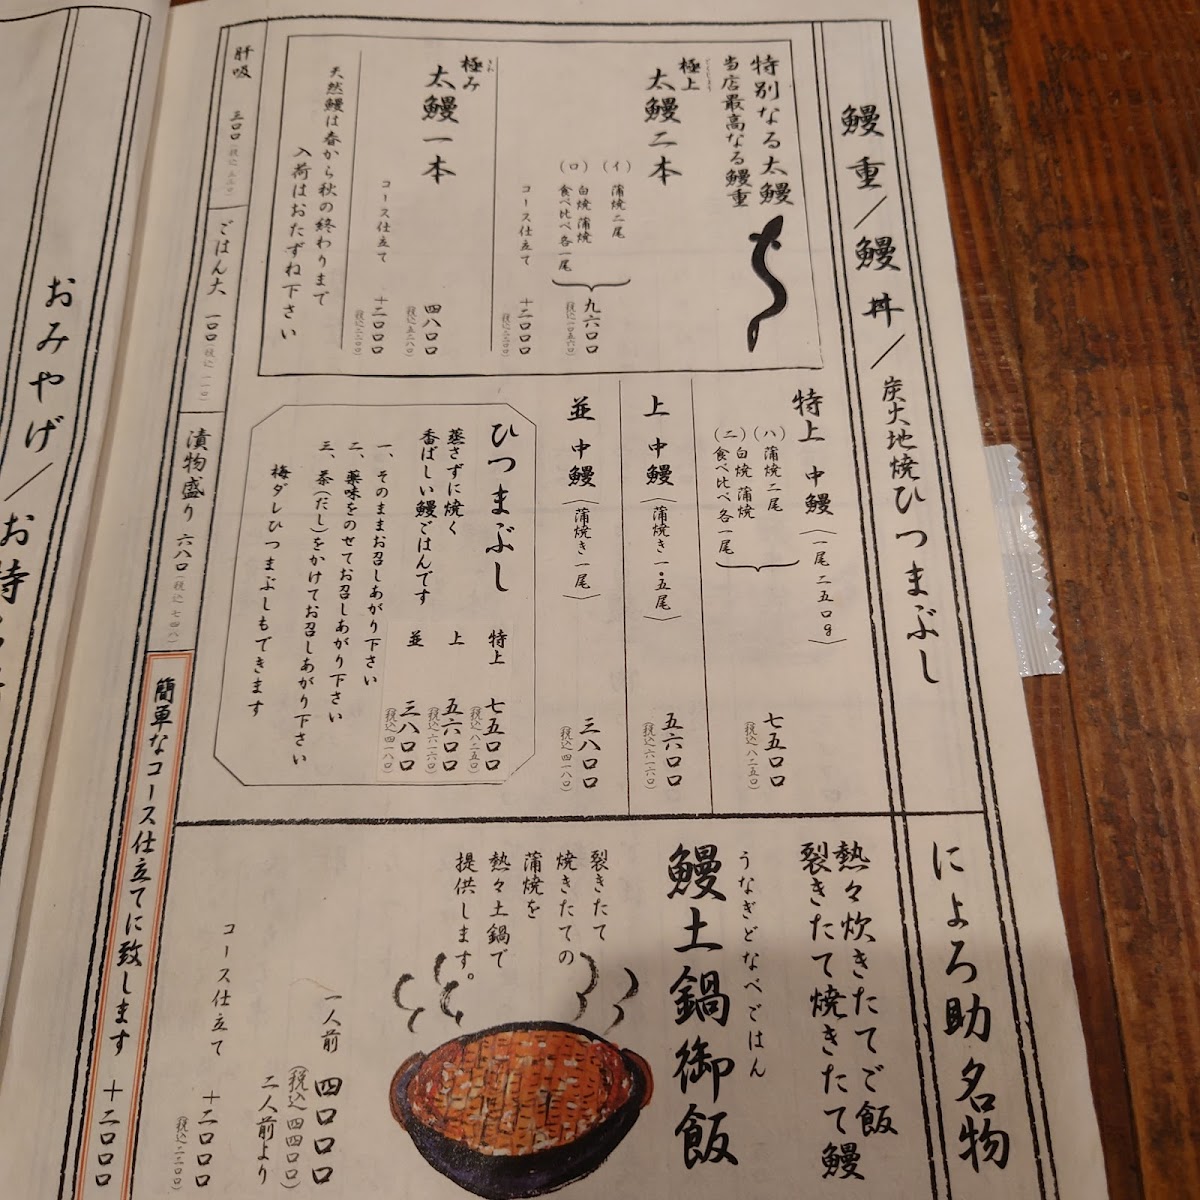 鰻重／鰻丼／炭火地焼ひつまぶし
特別なる太鰻
当店最高なる鰻重
極上
太鰻二本
(イ) 蒲焼二尾
(ロ) 白焼 蒲焼
食べ比べ各一尾
九六〇〇
(税込一〇五六〇)
コース仕立て
十二〇〇〇
極み
太鰻一本
四八〇〇
(税込五二八〇)
コース仕立て
十二〇〇〇
天然鰻は春から秋の終わりまで
入荷はおたずね下さい
特上 中鰻(一尾二五〇g)
(ハ) 蒲焼二尾
(ニ) 白焼 蒲焼
食べ比べ各一尾
七五〇〇
(税込八二五〇)
上 中鰻(蒲焼き一・五尾)
五六〇〇
(税込六一六〇)
並 中鰻(蒲焼き一尾)
三八〇〇
(税込四一八〇)
ひつまぶし
蒸さずに焼く
香ばしい鰻ごはんです
特上 七五〇〇
(税込八二五〇)
上 五六〇〇
(税込六一六〇)
並 三八〇〇
(税込四一八〇)
一、そのままお召しあがり下さい
二、薬味をのせてお召しあがり下さい
三、茶(だし)をかけてお召しあがり下さい
梅ダレひつまぶしもできます
肝吸 三〇〇(税込三三〇)
ごはん大 一〇〇(税込一一〇)
漬物盛り 六八〇(税込七四八)
簡単なコース仕立てに致します 十二〇〇〇
によろ助名物
熱々炊きたてご飯
裂きたて焼きたて鰻
うなぎどなべごはん
鰻土鍋御飯
裂きたて
焼きたての
蒲焼を
熱々土鍋で
提供します。
一人前 四〇〇〇
(税込四四〇〇)
二人前より
コース仕立て 十二〇〇〇
おみやげ／お